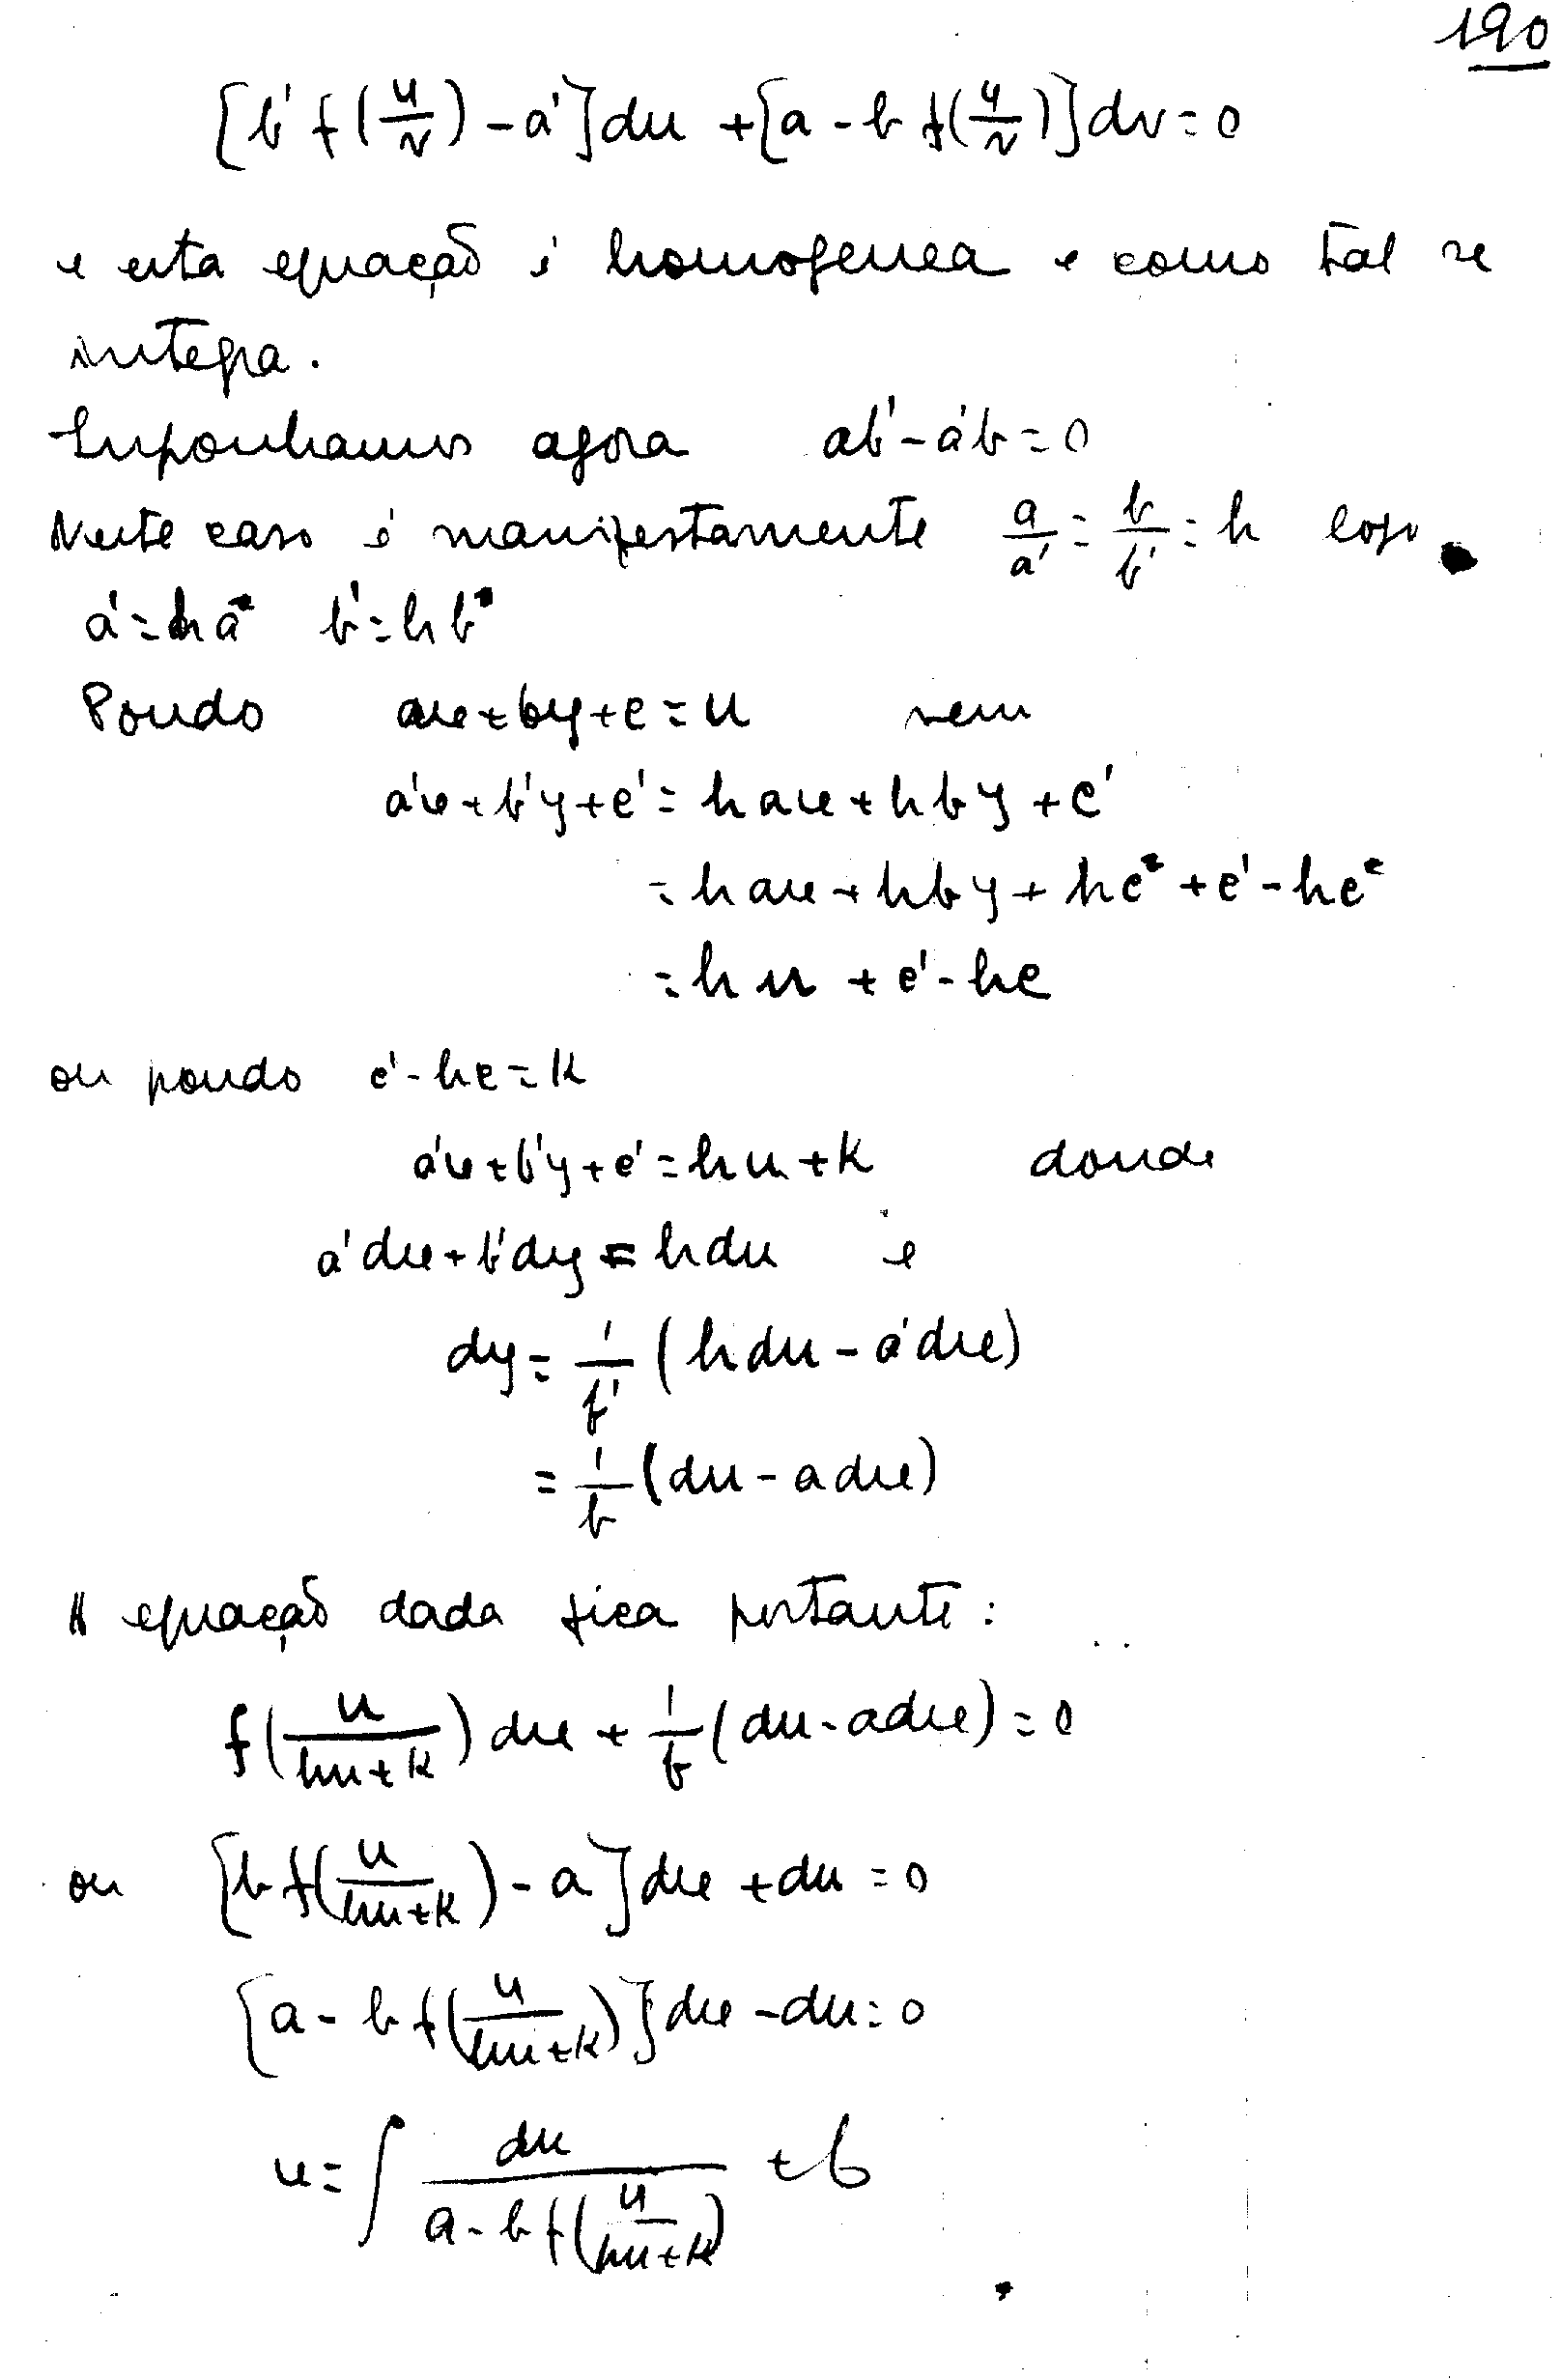 190
[b' f(u/v) - a'] du + [a - b f(u/v)] dv = 0
e esta equação é homogenea e como tal se
integra.
Suponhamos agora ab' - a'b = 0
Neste caso é manifestamente a/a' = b/b' = h logo
a' = ha b' = hb
Pondo ax + by + c = u vem
a'x + b'y + c' = hax + hby + c'
= hax + hby + hc + c' - hc
= hu + c' - hc
ou pondo c' - hc = k
a'x + b'y + c' = hu + k donde
a'dx + b'dy = hdu e
dy = 1/b' (hdu - a'dx)
= 1/b (du - adx)
A equação dada fica portanto:
f(u/(hu+k)) dx + 1/b (du - adx) = 0
ou [b f(u/(hu+k)) - a] dx + du = 0
[a - b f(u/(hu+k))] dx - du = 0
x = ∫ du/(a - b f(u/(hu+k))) + C